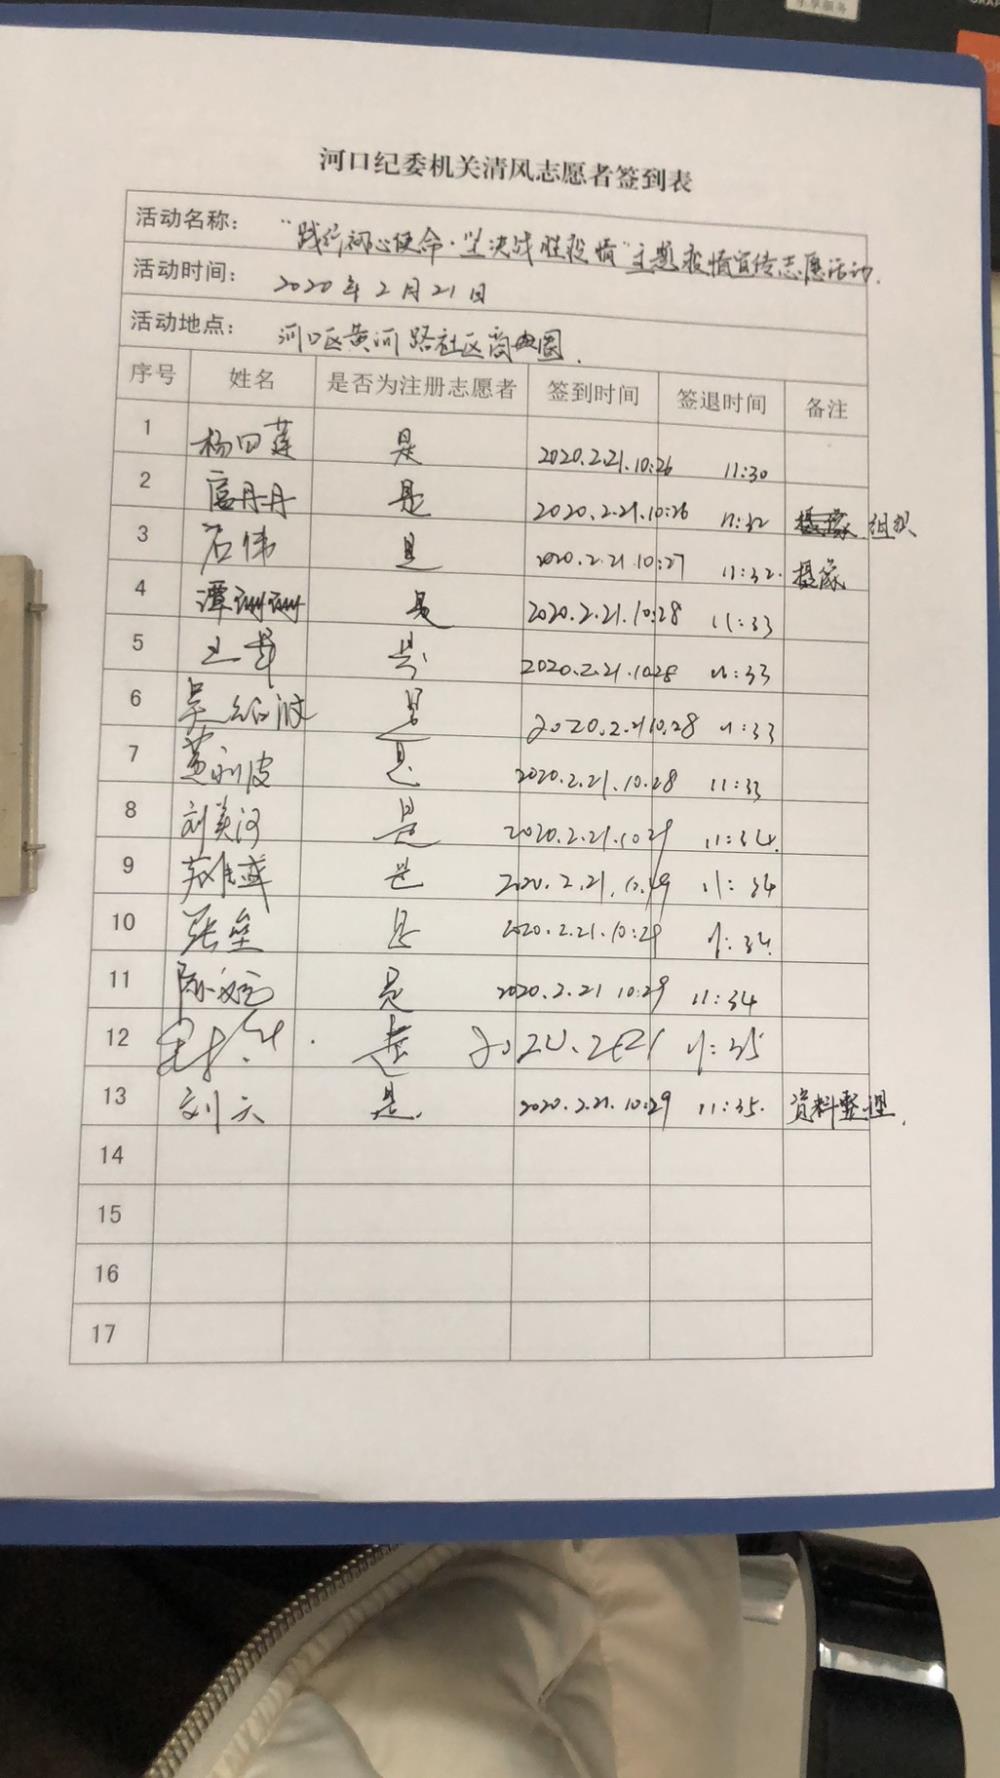 乐享服务
河口纪委机关清风志愿者签到表
活动名称： “践行初心使命·坚决战胜疫情”主题疫情宣传志愿活动.
活动时间： 2020年2月21日
活动地点： 河口区黄河路社区商业圈.
序号 姓名 是否为注册志愿者 签到时间 签退时间 备注
1 杨田莲 是 2020.2.21.10:26 11:30
2 扈丹丹 是 2020.2.21.10:26 11:32 组织
3 石伟 是 2020.2.21 10:27 11:32. 摄像
4 谭珊珊 是 2020.2.21.10:28 11:33
5 是 2020.2.21.1028 11:33
6 吴红波 是 2020.2.2110.28 11:33
7 是 2020.2.21.10.28 11:33
8 刘英河 是 2020.2.21.1029 11:34.
9 是 2020.2.21.10.29 11:34
10 张垒 是 2020.2.21.10:29 11:34.
11 是 2020.2.21 10:29 11:34
12 是 2020.2.21 11:35
13 刘云 是. 2020.2.21.10:29 11:35. 资料整理.
14
15
16
17